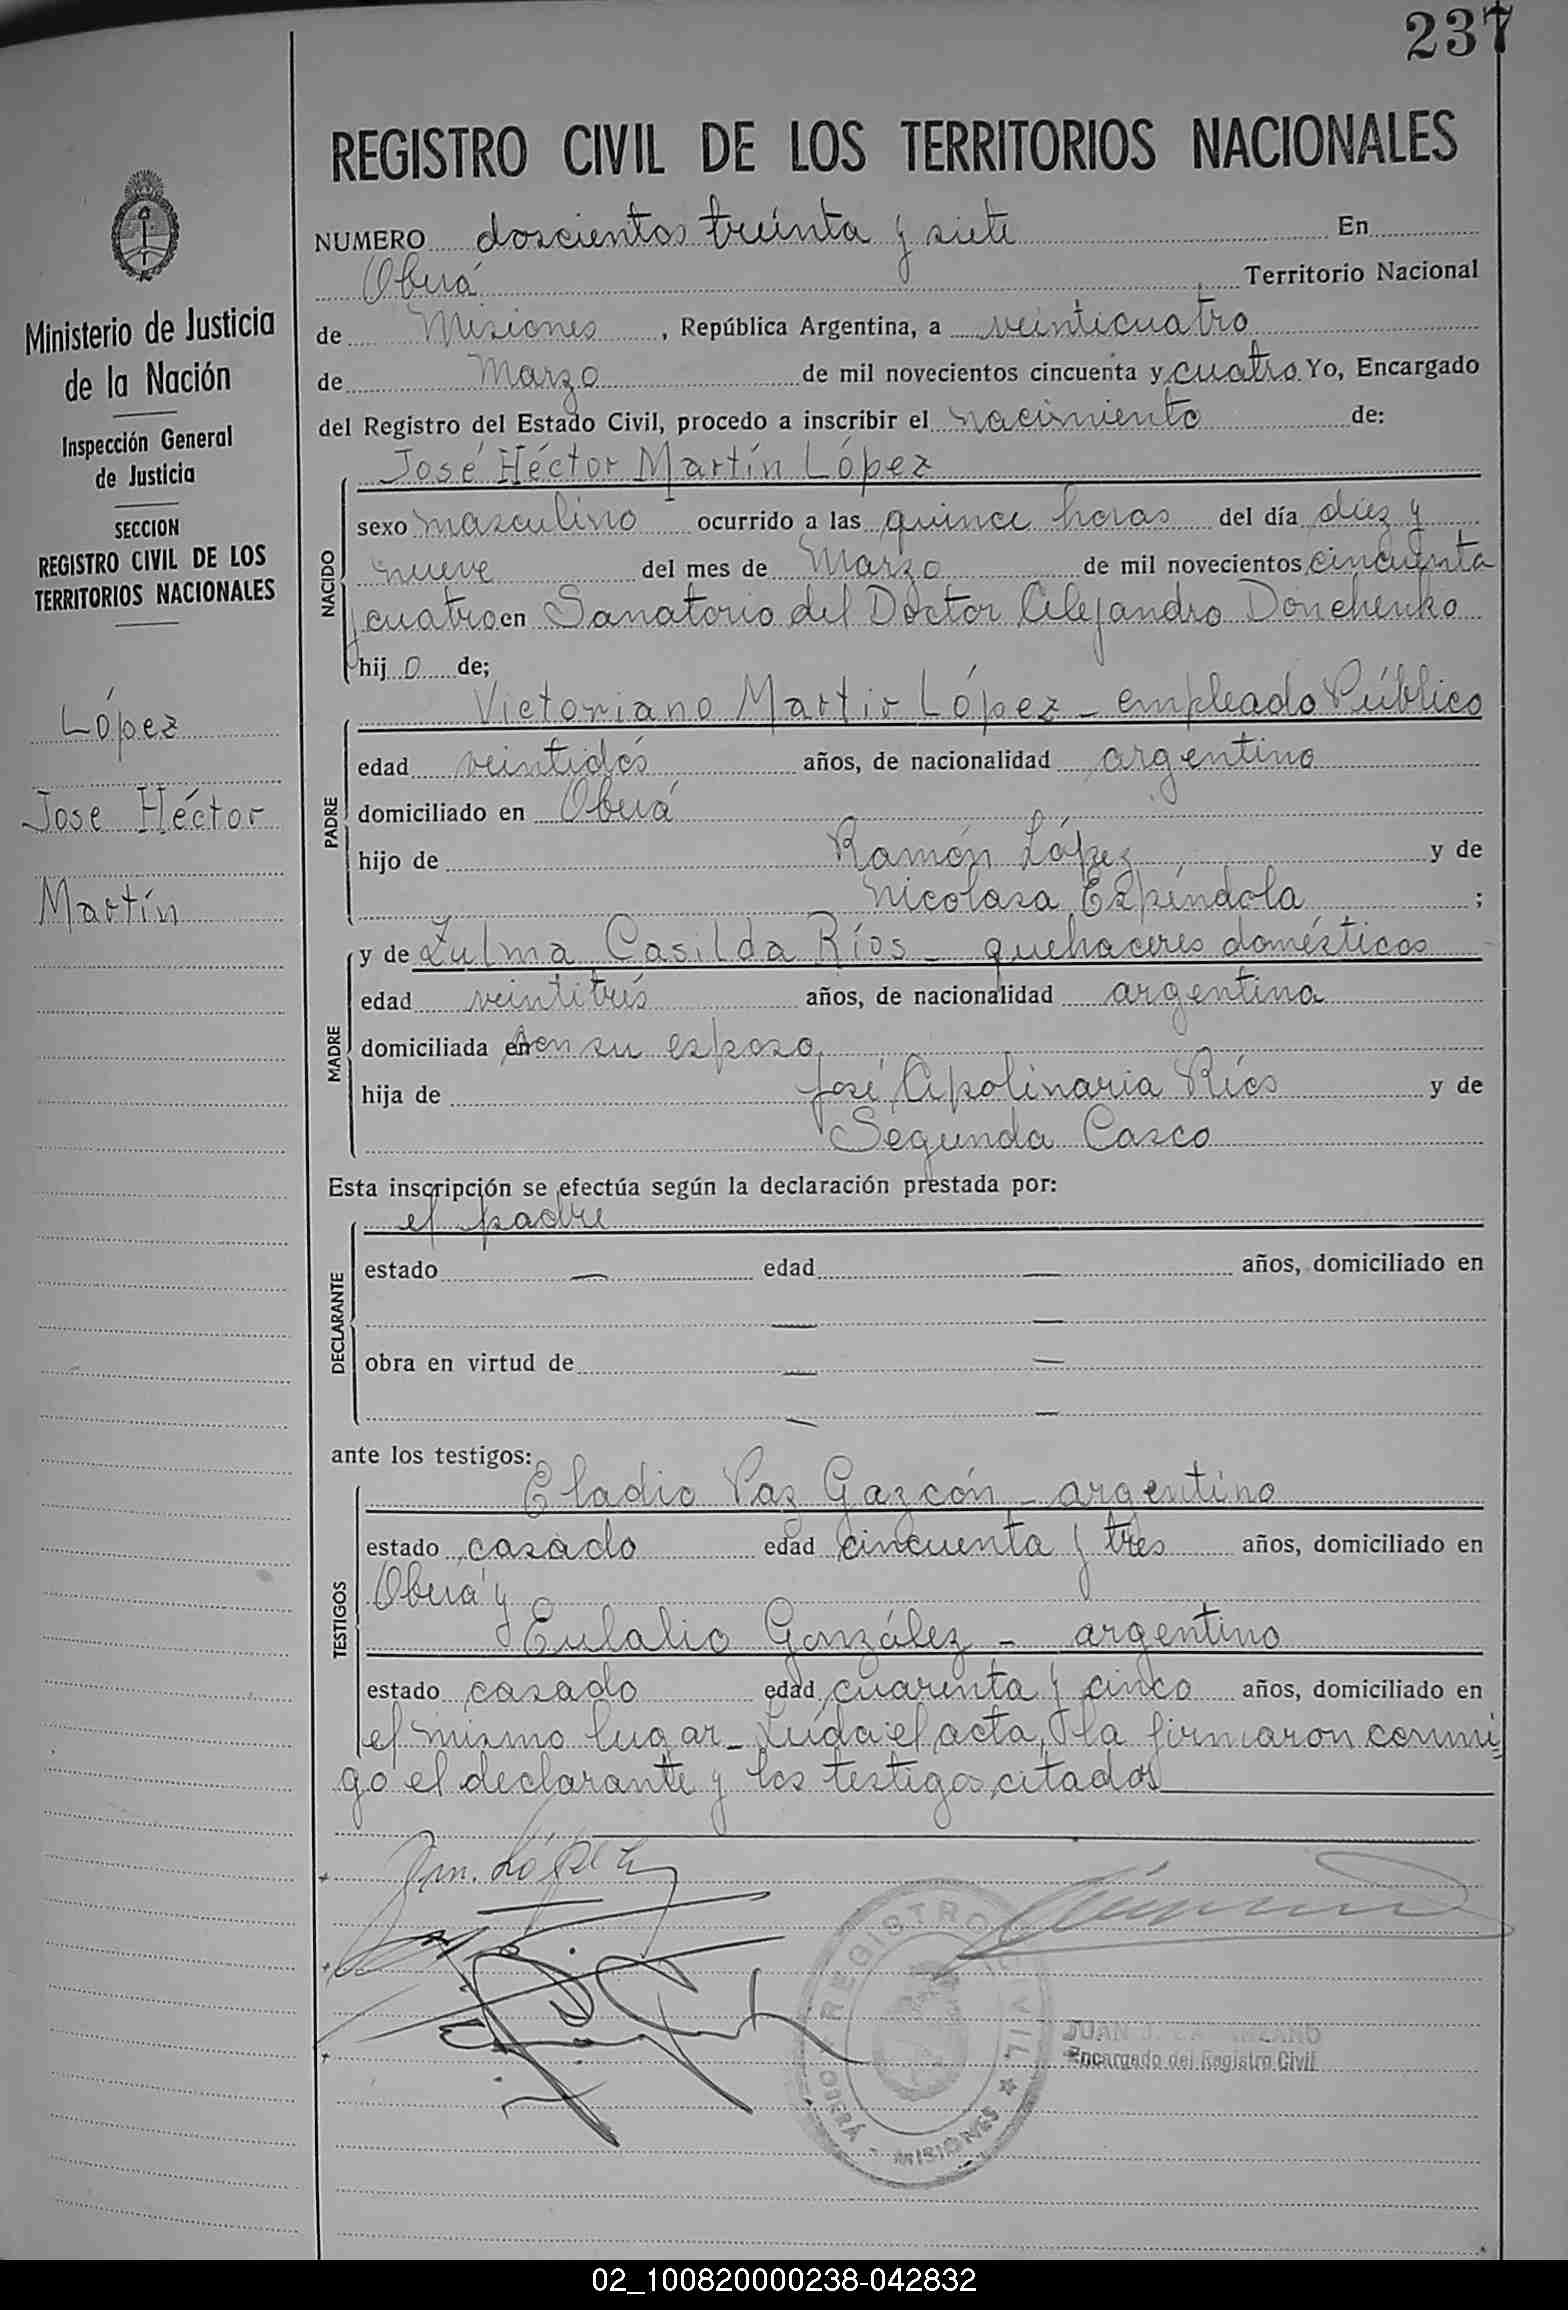 237
REGISTRO CIVIL DE LOS TERRITORIOS NACIONALES
Ministerio de Justicia
de la Nación
Inspección General
de Justicia
SECCION
REGISTRO CIVIL DE LOS
TERRITORIOS NACIONALES
López
Jose Héctor
Martín
NUMERO doscientos treinta y siete En
Oberá Territorio Nacional
de Misiones, República Argentina, a veinticuatro
de Marzo de mil novecientos cincuenta y cuatro Yo, Encargado
del Registro del Estado Civil, procedo a inscribir el nacimiento de:
José Héctor Martín López
NACIDO
sexo masculino ocurrido a las quince horas del día diez y
nueve del mes de Marzo de mil novecientos cincuenta
y cuatro en Sanatorio del Doctor Alejandro Donchenko
hijo de;
Victoriano Martir López - empleado Público
PADRE
edad veintidós años, de nacionalidad argentino
domiciliado en Oberá
hijo de Ramón López y de
Nicolasa Espíndola ;
y de Zulma Casilda Ríos - quehaceres domésticos
MADRE
edad veintitrés años, de nacionalidad argentina
domiciliada en con su esposo
hija de José Apolinaria Ríos y de
Segunda Casco
Esta inscripción se efectúa según la declaración prestada por:
el padre
DECLARANTE
estado — edad — años, domiciliado en
— —
obra en virtud de — —
— —
ante los testigos:
Eladio Paz Gazcón - argentino
TESTIGOS
estado casado edad cincuenta y tres años, domiciliado en
Oberá y
Eulalio González - argentino
estado casado edad cuarenta y cinco años, domiciliado en
el mismo lugar - Leída el acta, la firmaron conmi=
go el declarante y los testigos citados
López
REGISTRO CIVIL
OBERÁ - MISIONES
JUAN
Encargado del Registro Civil
02_100820000238-042832